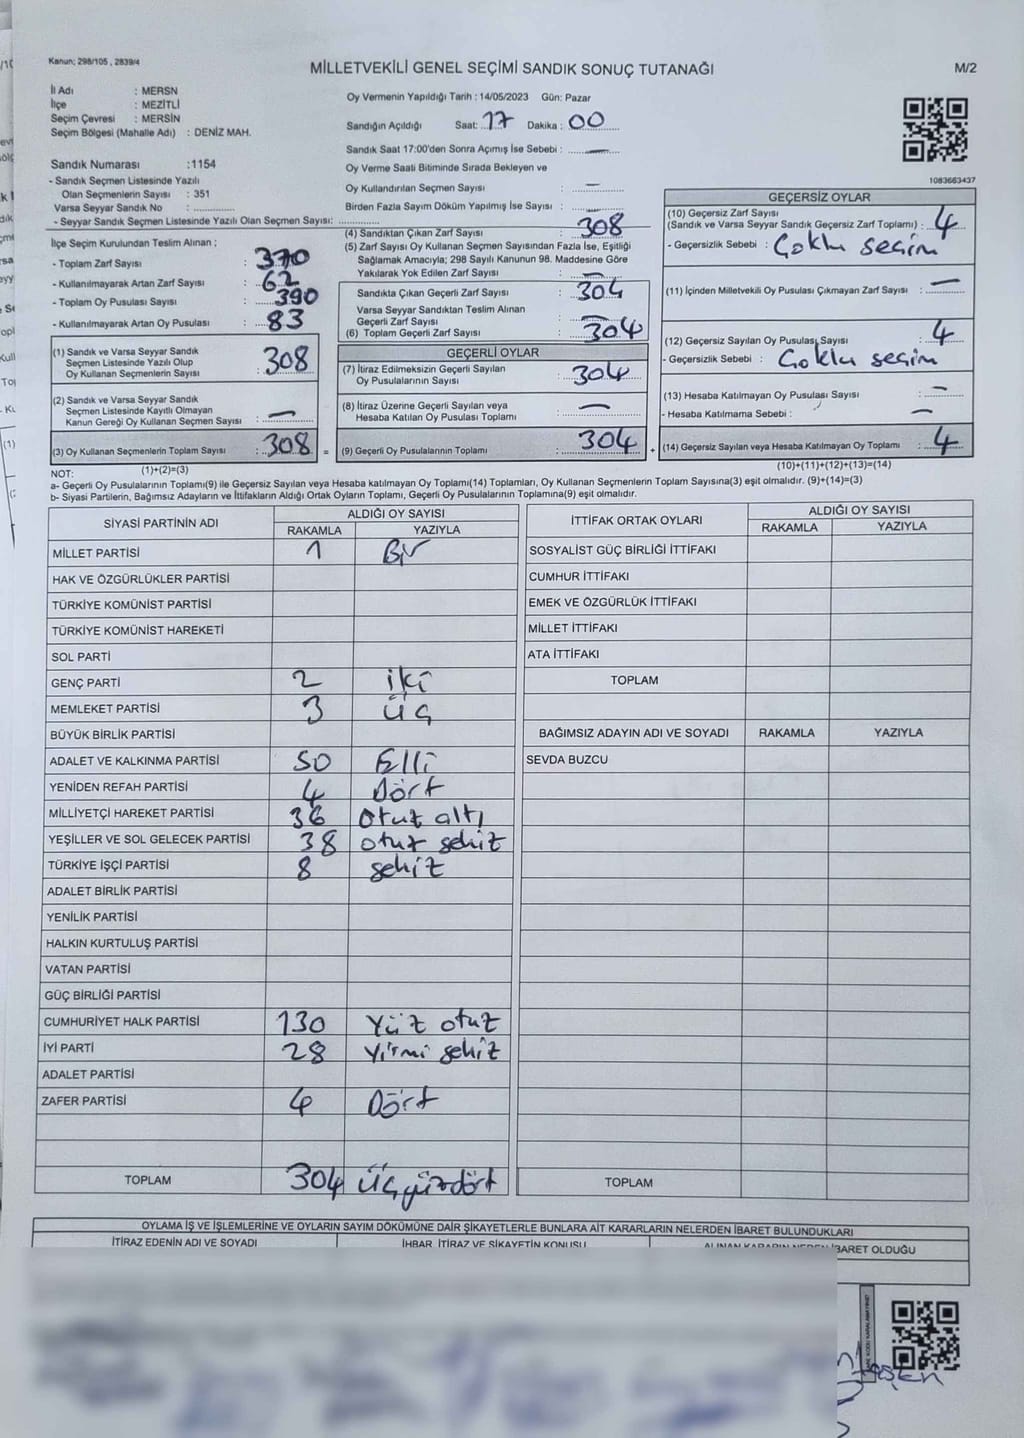 Kanun; 298/105 , 2839/4
MİLLETVEKİLİ GENEL SEÇİMİ SANDIK SONUÇ TUTANAĞI
M/2
İl Adı : MERSN
İlçe : MEZİTLİ
Seçim Çevresi : MERSİN
Seçim Bölgesi (Mahalle Adı) : DENİZ MAH.
Sandık Numarası :1154
- Sandık Seçmen Listesinde Yazılı
Olan Seçmenlerin Sayısı : 351
Varsa Seyyar Sandık No :
- Seyyar Sandık Seçmen Listesinde Yazılı Olan Seçmen Sayısı:
İlçe Seçim Kurulundan Teslim Alınan ;
- Toplam Zarf Sayısı : 370
- Kullanılmayarak Artan Zarf Sayısı : 62
- Toplam Oy Pusulası Sayısı : 390
- Kullanılmayarak Artan Oy Pusulası : 83
(1) Sandık ve Varsa Seyyar Sandık
Seçmen Listesinde Yazılı Olup
Oy Kullanan Seçmenlerin Sayısı : 308
(2) Sandık ve Varsa Seyyar Sandık
Seçmen Listesinde Kayıtlı Olmayan
Kanun Gereği Oy Kullanan Seçmen Sayısı : —
(3) Oy Kullanan Seçmenlerin Toplam Sayısı : 308 =
Oy Vermenin Yapıldığı Tarih : 14/05/2023 Gün: Pazar
Sandığın Açıldığı Saat: 17 Dakika : 00
Sandık Saat 17:00'den Sonra Açımış İse Sebebi : —
Oy Verme Saati Bitiminde Sırada Bekleyen ve
Oy Kullandırılan Seçmen Sayısı : —
Birden Fazla Sayım Döküm Yapılmış İse Sayısı : —
(4) Sandıktan Çıkan Zarf Sayısı : 308
(5) Zarf Sayısı Oy Kullanan Seçmen Sayısından Fazla İse, Eşitliği
Sağlamak Amacıyla; 298 Sayılı Kanunun 98. Maddesine Göre
Yakılarak Yok Edilen Zarf Sayısı : —
Sandıkta Çıkan Geçerli Zarf Sayısı : 304
Varsa Seyyar Sandıktan Teslim Alınan
Geçerli Zarf Sayısı : —
(6) Toplam Geçerli Zarf Sayısı : 304
GEÇERLİ OYLAR
(7) İtiraz Edilmeksizin Geçerli Sayılan
Oy Pusulalarının Sayısı : 304
(8) İtiraz Üzerine Geçerli Sayılan veya
Hesaba Katılan Oy Pusulası Toplamı : —
(9) Geçerli Oy Pusulalarının Toplamı : 304 +
1083663437
GEÇERSİZ OYLAR
(10) Geçersiz Zarf Sayısı
(Sandık ve Varsa Seyyar Sandık Geçersiz Zarf Toplamı) : 4
- Geçersizlik Sebebi : Çoklu seçim
(11) İçinden Milletvekili Oy Pusulası Çıkmayan Zarf Sayısı : —
(12) Geçersiz Sayılan Oy Pusulası Sayısı : 4
- Geçersizlik Sebebi : Çoklu seçim
(13) Hesaba Katılmayan Oy Pusulası Sayısı : —
- Hesaba Katılmama Sebebi : —
(14) Geçersiz Sayılan veya Hesaba Katılmayan Oy Toplamı : 4
NOT: (1)+(2)=(3)
(10)+(11)+(12)+(13)=(14)
a- Geçerli Oy Pusulalarının Toplamı(9) ile Geçersiz Sayılan veya Hesaba katılmayan Oy Toplamı(14) Toplamları, Oy Kullanan Seçmenlerin Toplam Sayısına(3) eşit olmalıdır. (9)+(14)=(3)
b- Siyasi Partilerin, Bağımsız Adayların ve İttifakların Aldığı Ortak Oyların Toplamı, Geçerli Oy Pusulalarının Toplamına(9) eşit olmalıdır.
SİYASİ PARTİNİN ADI ALDIĞI OY SAYISI
RAKAMLA YAZIYLA
MİLLET PARTİSİ 1 Bir
HAK VE ÖZGÜRLÜKLER PARTİSİ
TÜRKİYE KOMÜNİST PARTİSİ
TÜRKİYE KOMÜNİST HAREKETİ
SOL PARTİ
GENÇ PARTİ 2 iki
MEMLEKET PARTİSİ 3 üç
BÜYÜK BİRLİK PARTİSİ
ADALET VE KALKINMA PARTİSİ 50 Elli
YENİDEN REFAH PARTİSİ 4 Dört
MİLLİYETÇİ HAREKET PARTİSİ 36 otuz altı
YEŞİLLER VE SOL GELECEK PARTİSİ 38 otuz sekiz
TÜRKİYE İŞÇİ PARTİSİ 8 sekiz
ADALET BİRLİK PARTİSİ
YENİLİK PARTİSİ
HALKIN KURTULUŞ PARTİSİ
VATAN PARTİSİ
GÜÇ BİRLİĞİ PARTİSİ
CUMHURİYET HALK PARTİSİ 130 Yüz otuz
İYİ PARTİ 28 Yirmi sekiz
ADALET PARTİSİ
ZAFER PARTİSİ 4 Dört
TOPLAM 304 Üçyüzdört
İTTİFAK ORTAK OYLARI ALDIĞI OY SAYISI
RAKAMLA YAZIYLA
SOSYALİST GÜÇ BİRLİĞİ İTTİFAKI
CUMHUR İTTİFAKI
EMEK VE ÖZGÜRLÜK İTTİFAKI
MİLLET İTTİFAKI
ATA İTTİFAKI
TOPLAM
BAĞIMSIZ ADAYIN ADI VE SOYADI RAKAMLA YAZIYLA
SEVDA BUZCU
TOPLAM
OYLAMA İŞ VE İŞLEMLERİNE VE OYLARIN SAYIM DÖKÜMÜNE DAİR ŞİKAYETLERLE BUNLARA AİT KARARLARIN NELERDEN İBARET BULUNDUKLARI
İTİRAZ EDENİN ADI VE SOYADI İHBAR, İTİRAZ VE ŞİKAYETİN KONUSU ALINAN KARARIN NEDEN İBARET OLDUĞU